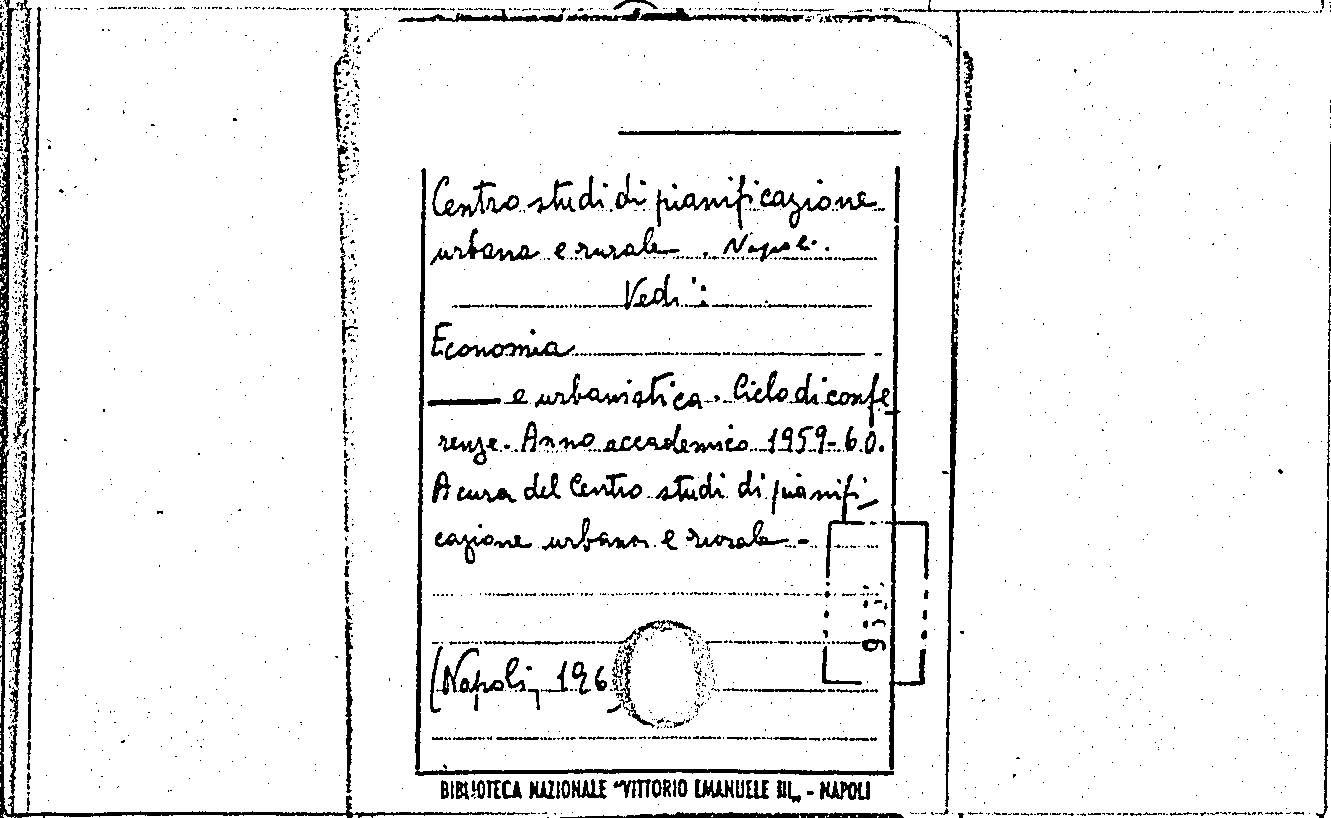 Centro studi di pianificazione
urbana e rurale. Napoli.
Vedi:
Economia
—— e urbanistica. Ciclo di confe
renze. Anno accademico 1959-60.
A cura del Centro studi di pianifi-
cazione urbana e rurale -
(Napoli, 196
BIBLIOTECA NAZIONALE "VITTORIO EMANUELE III„ - NAPOLI